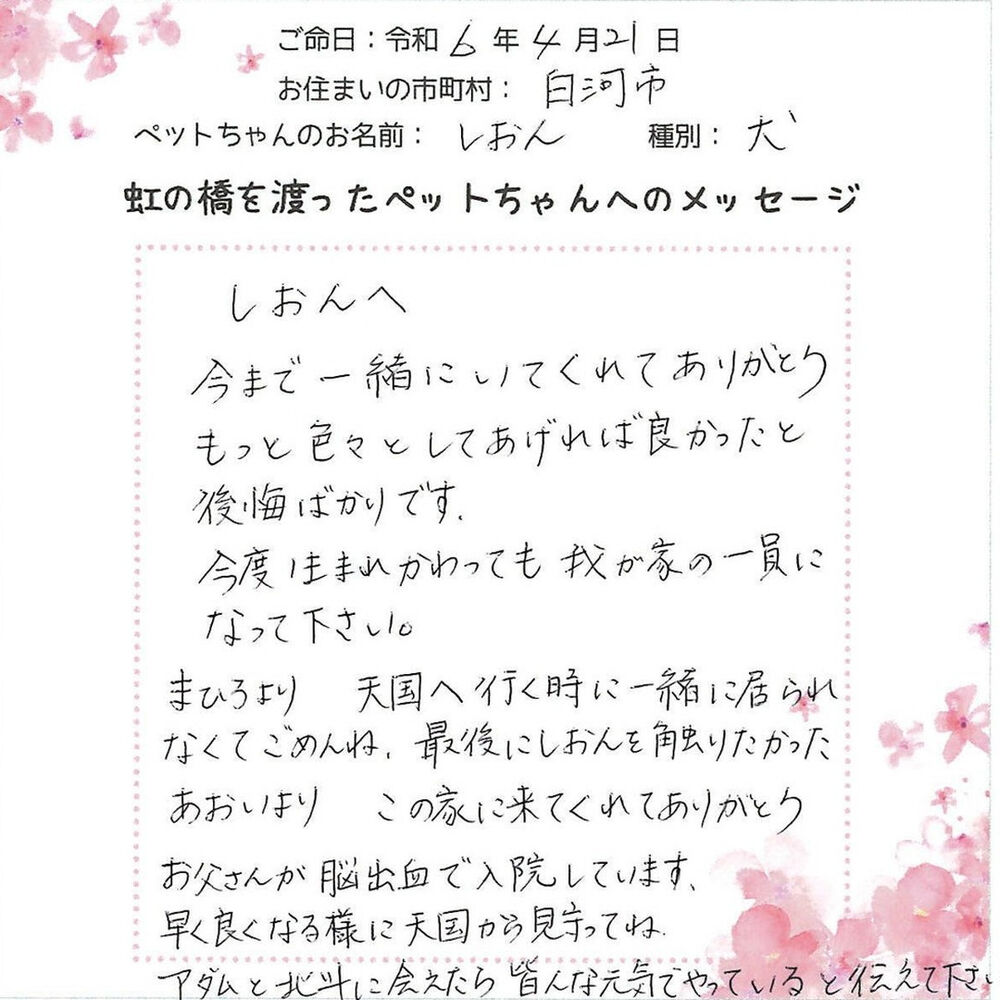 ご命日：令和 6 年 4 月 21 日
お住まいの市町村： 白河市
ペットちゃんのお名前： しおん 種別： 犬
虹の橋を渡ったペットちゃんへのメッセージ
しおんへ
今まで一緒にいてくれてありがとう
もっと色々としてあげれば良かったと
後悔ばかりです.
今度生まれかわっても我が家の一員に
なって下さい。
まひろより 天国へ行く時に一緒に居られ
なくてごめんね. 最後にしおんを触りたかった
あおいより この家に来てくれてありがとう
お父さんが脳出血で入院しています.
早く良くなる様に天国から見守ってね.
アダムと北斗に会えたら皆んな元気でやっていると伝えて下さい